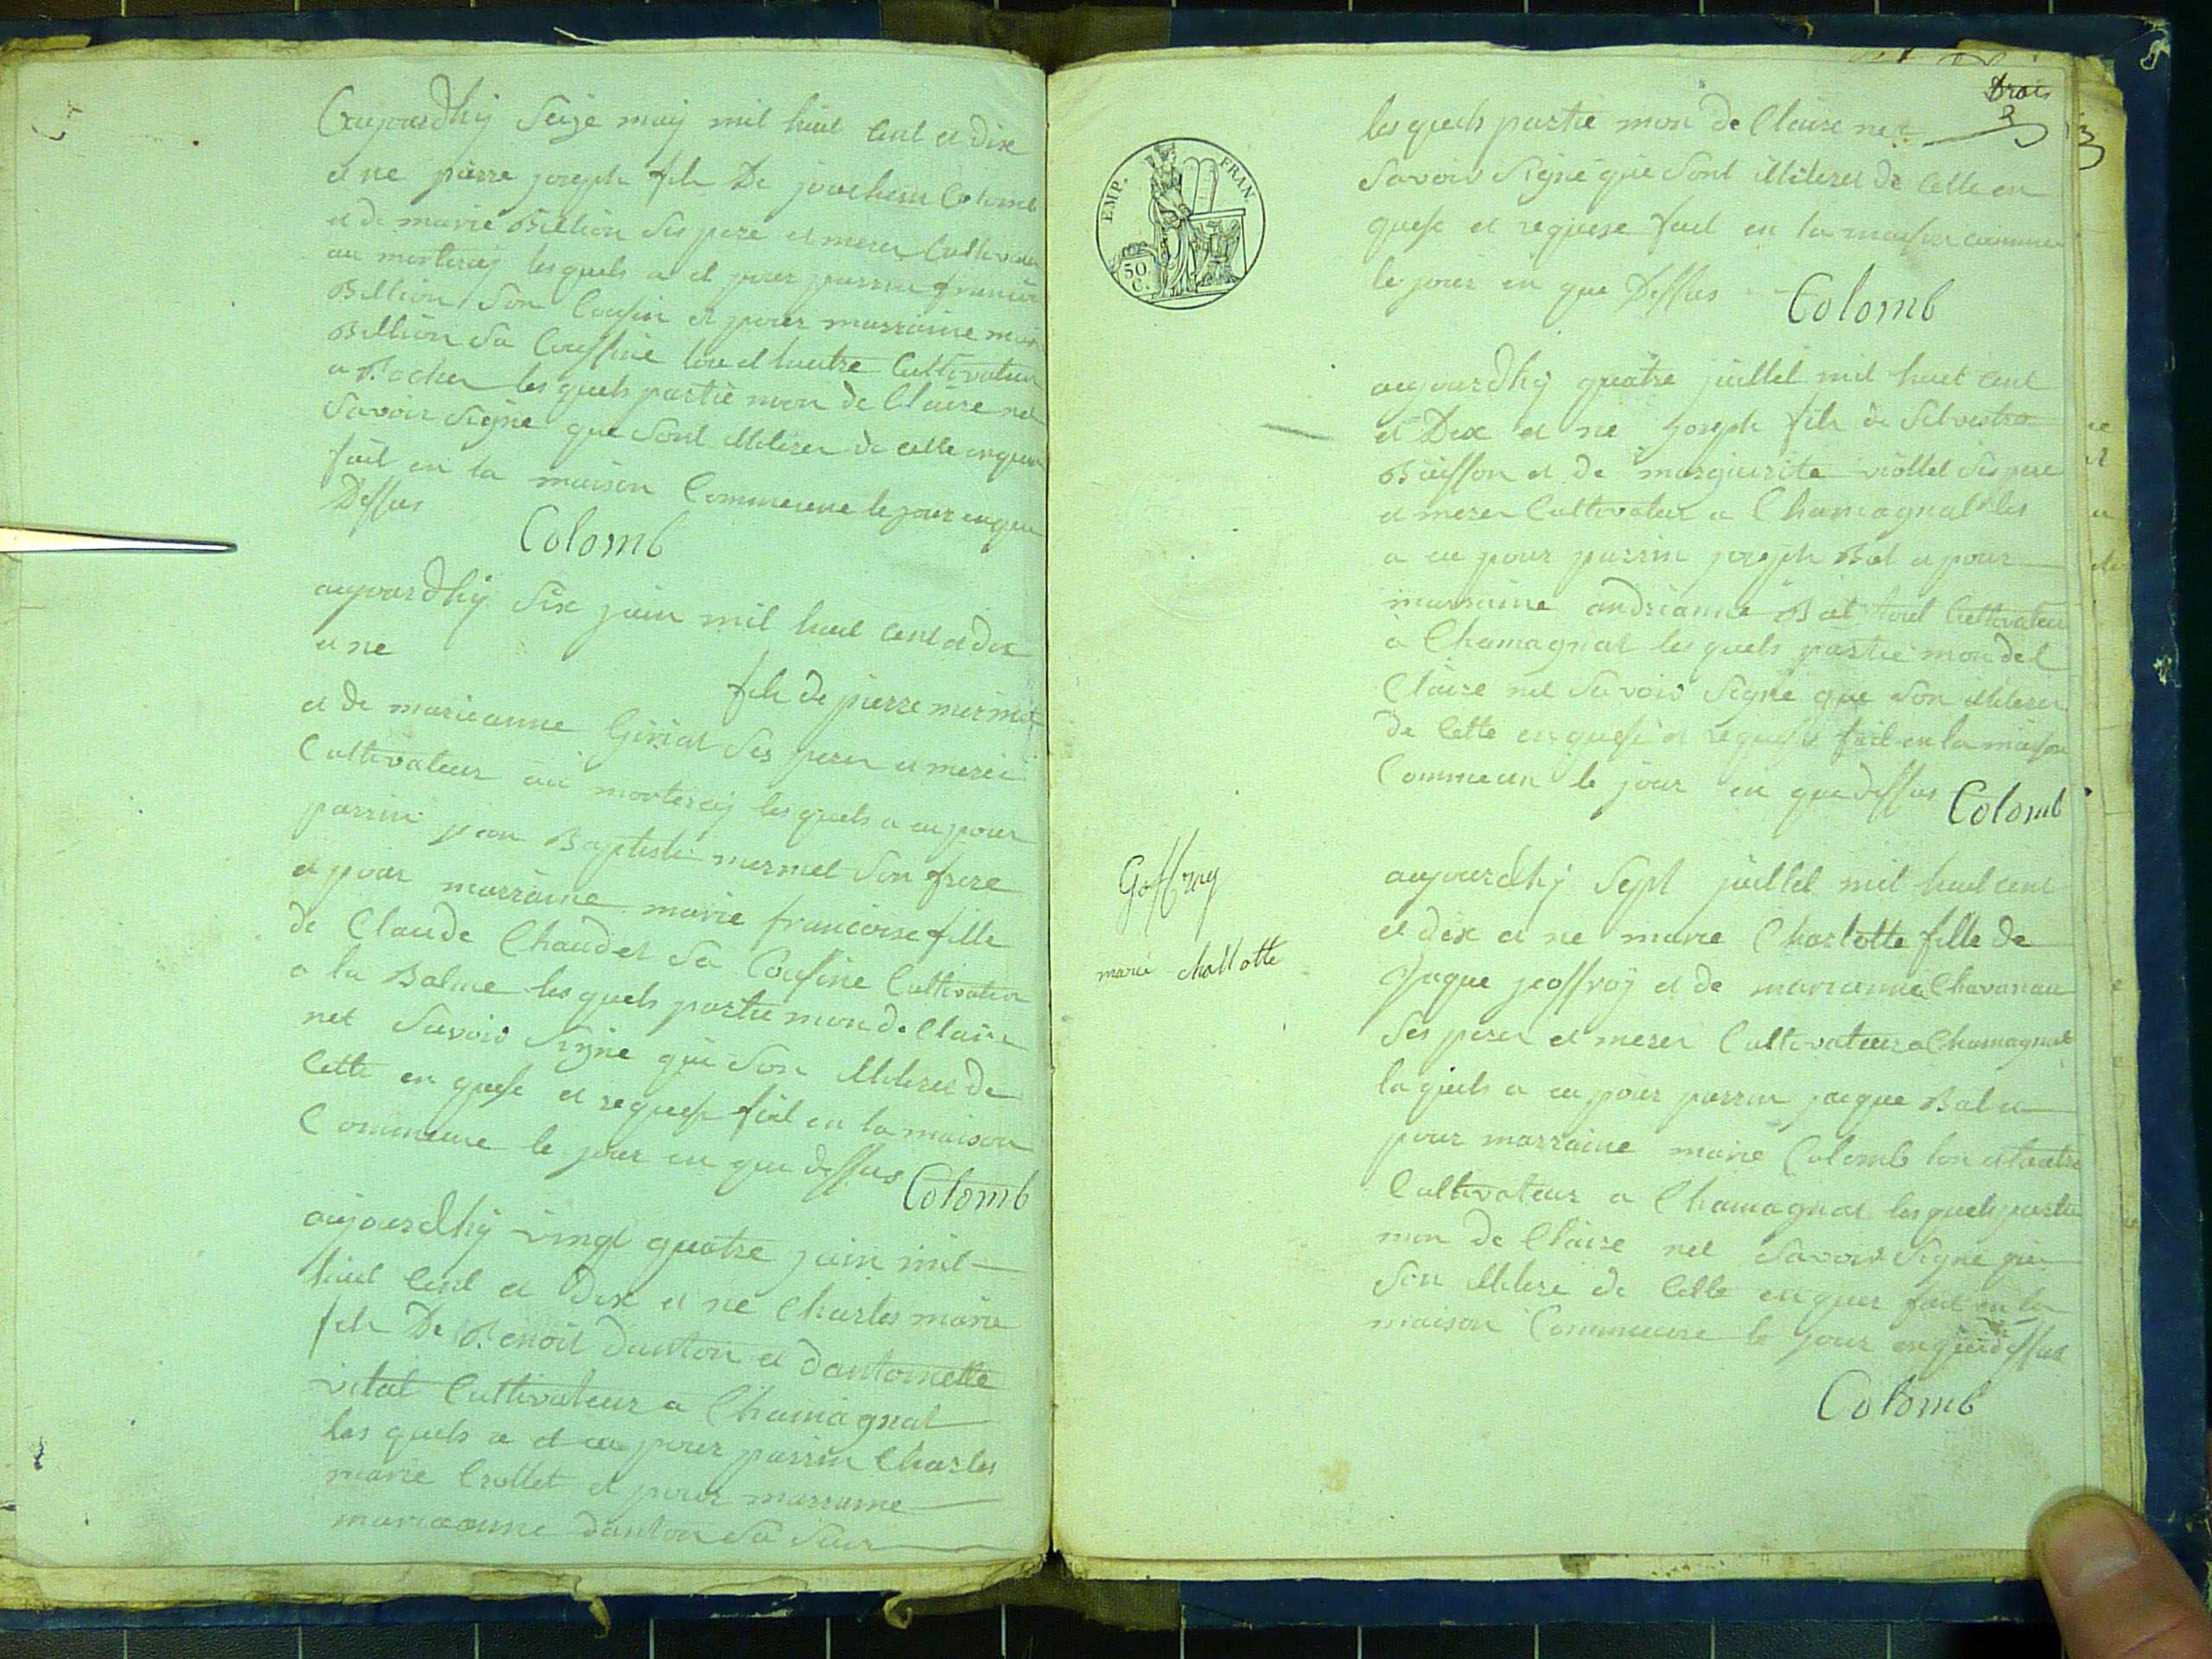 aujourdhÿ Seize maÿ mil huit Cent et dix
et ne pierre joseph fils De jouchim Colomb
et de marie Billion ses pere et merer Cultivateur
au monterej lesquels a et pour parrin francois
Billion Son Cousin et pour marraine marie
Billion Sa Coussine lon et lautre Cultivateur
a Rocher lesquels partie mon de Claire nel
Savoir Signe que Sont illiterer de celle enquer
fait en la maison Commeune le jour en que
Dessus
Colomb
aujourdhÿ Six juin mil huit Cent et dix
et ne
fils de pierre mermet
et de marieanne Giriat Ses perer et merer
Cultivateur au monterej lesquels a eu pour
parrin jean Baptiste mermet Son frere
et pour marraine marie francoise fille
de Claude Chaudet Sa Cousine Cultivateur
a la Balme lesquels partie mon de Claire
nel Savoir Signe que Son illiterer de
Cette en quese et requese fait en la maison
Commeune le jour en que dessus
Colomb
aujourdhÿ vingt quatre juin mil
huit Cent et Dix et ne Charles marie
fils De Benoit danton et dantoinette
vital Cultivateur a Chamagnat
les quels a et eu pour parrin Charles
marie Crollet et pour marraine
marieanne danton Sa Seur
trois
3
EMP. FRAN.
50 C.
les quels partie mon de Claire nel
Savoir Signe que Sont illiterer de Celle en
quese et requese fait en la maison commeu
le jour en que Dessus
Colomb
aujourdhÿ quatre juillet mil huit Cent
et Dix et ne joseph fils de Silvestre
Buisson et de marguerite viollet Ses pere
et merer Cultivateur a Chamagnat les
a eu pour parrin joseph Bal a pour
marraine andrianne Bal tout Cultivateur
a Chamagnat lesquels partie mon del
Claire nel Savoir Signe que Son illiterer
de Cette en quese et requese fait en la maison
Commeun le jour en que dessus
Colomb
Goffrey
marie challotte
aujourdhÿ Sept juillet mil huit Cent
et dix et ne marie Charlotte fille de
Jaque jeoffroÿ et de marieanne Chavanau
Ses perer et merer Cultivateur a Chamagnat
laquels a eu pour parrin jacque Bal et
pour marraine marie Colomb lon et lautre
Cultivateur a Chamagnat lesquels partie
mon de Claire nel Savoir Signe que
Son illitere de Celle en quer fait en la
maison Commeune le jour en que dessus
Colomb